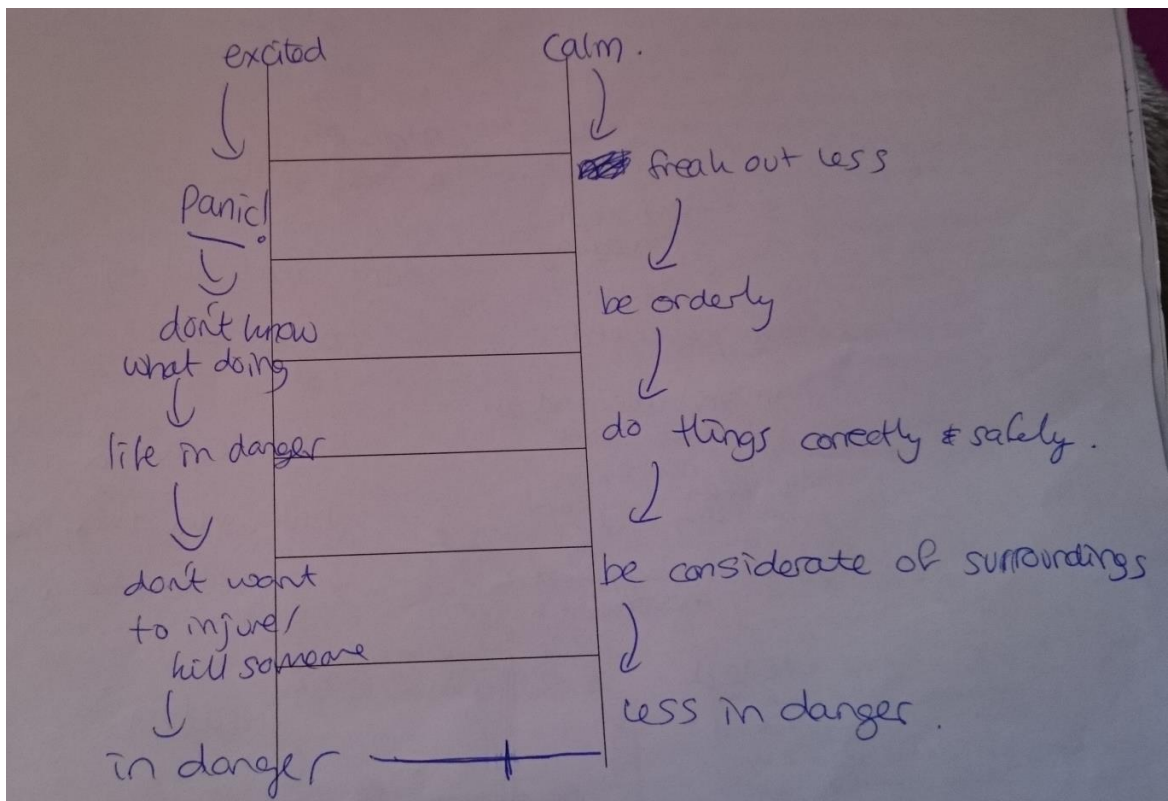 excited
Panic!
don't know
what doing
life in danger
don't want
to injure/
kill someone
in danger
Calm.
freak out less
be orderly
do things correctly & safely.
be considerate of surroundings
less in danger.